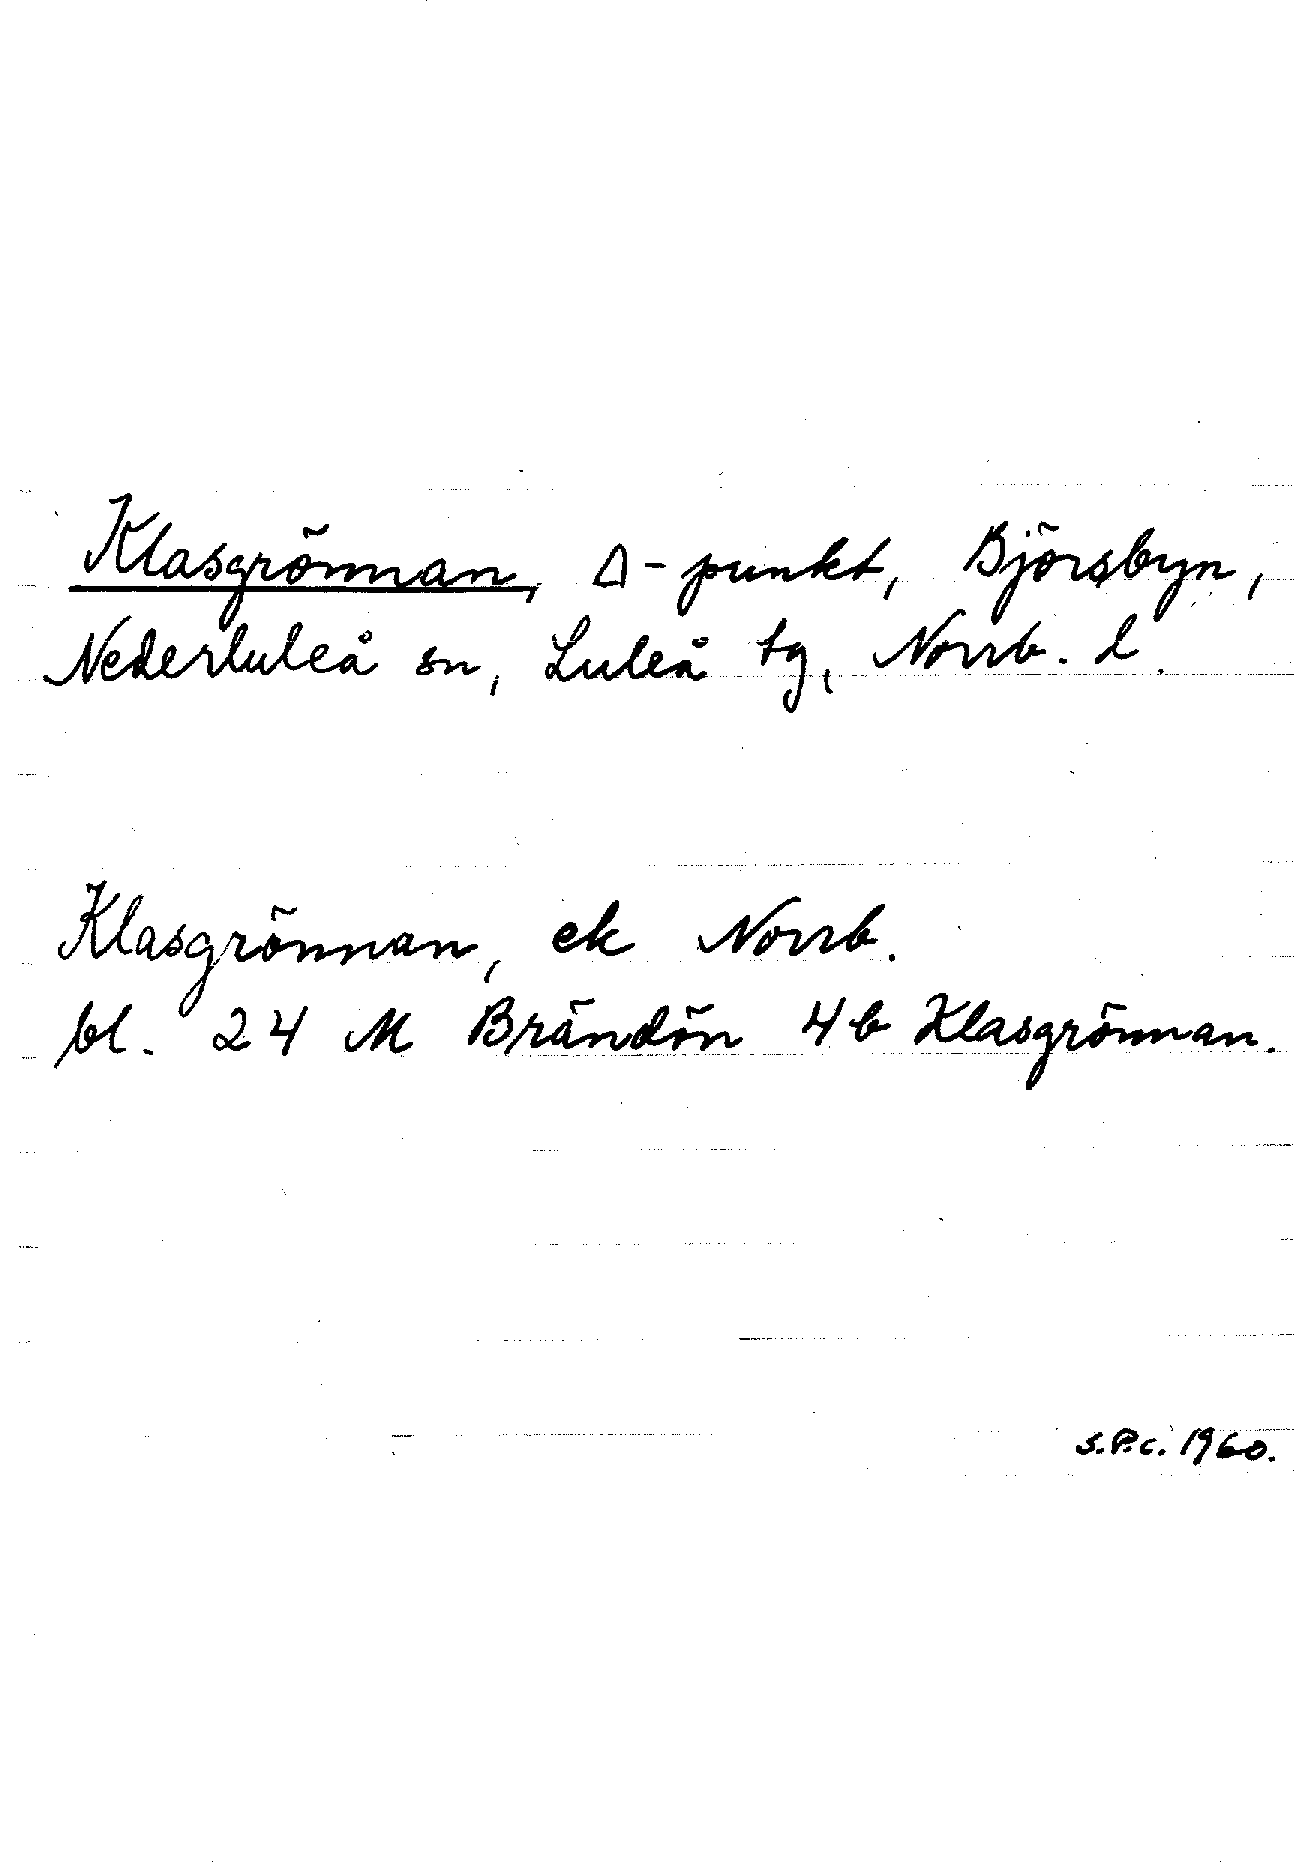 Klasgrönnan, Δ-punkt, Björsbyn,
Nederluleå sn, Luleå tg, Norrb. l.
Klasgrönnan, ek Norrb.
bl. 24 M Brändön 4b Klasgrönnan.
S.P.c. 1960.